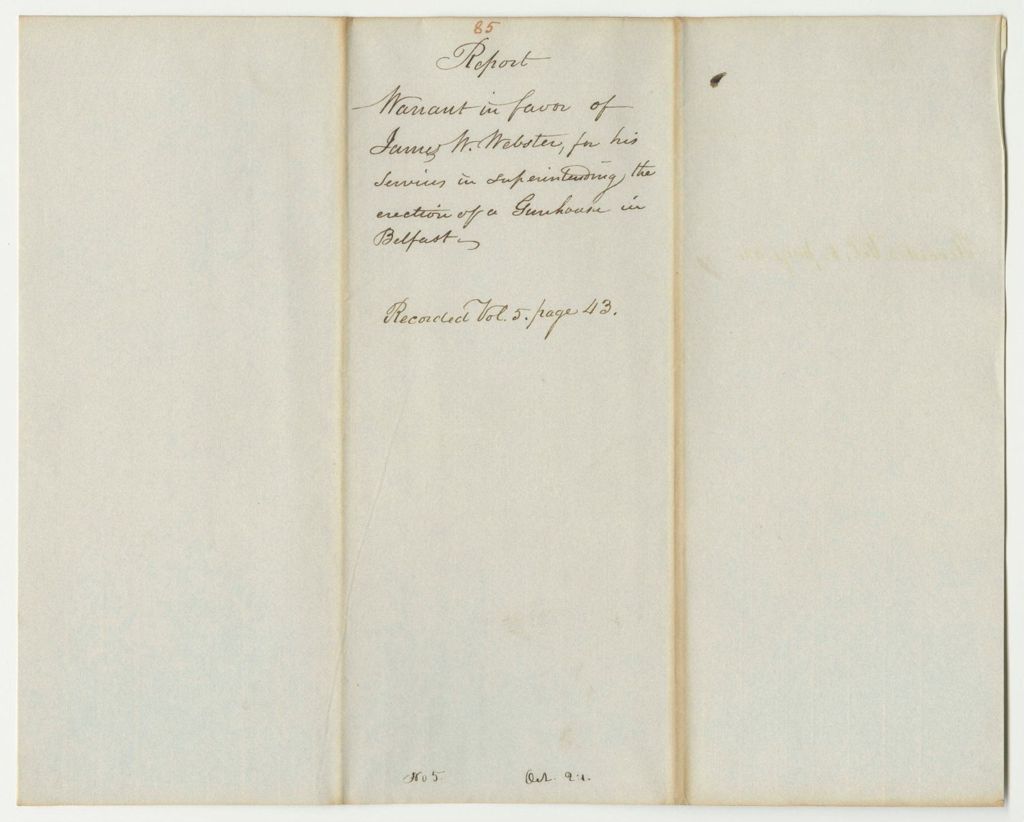 85
Report
Warrant in favor of
James W. Webster, for his
services in superintending the
erection of a Gunhouse in
Belfast
Recorded Vol. 5. page 43.
No 5
Oct. 21.